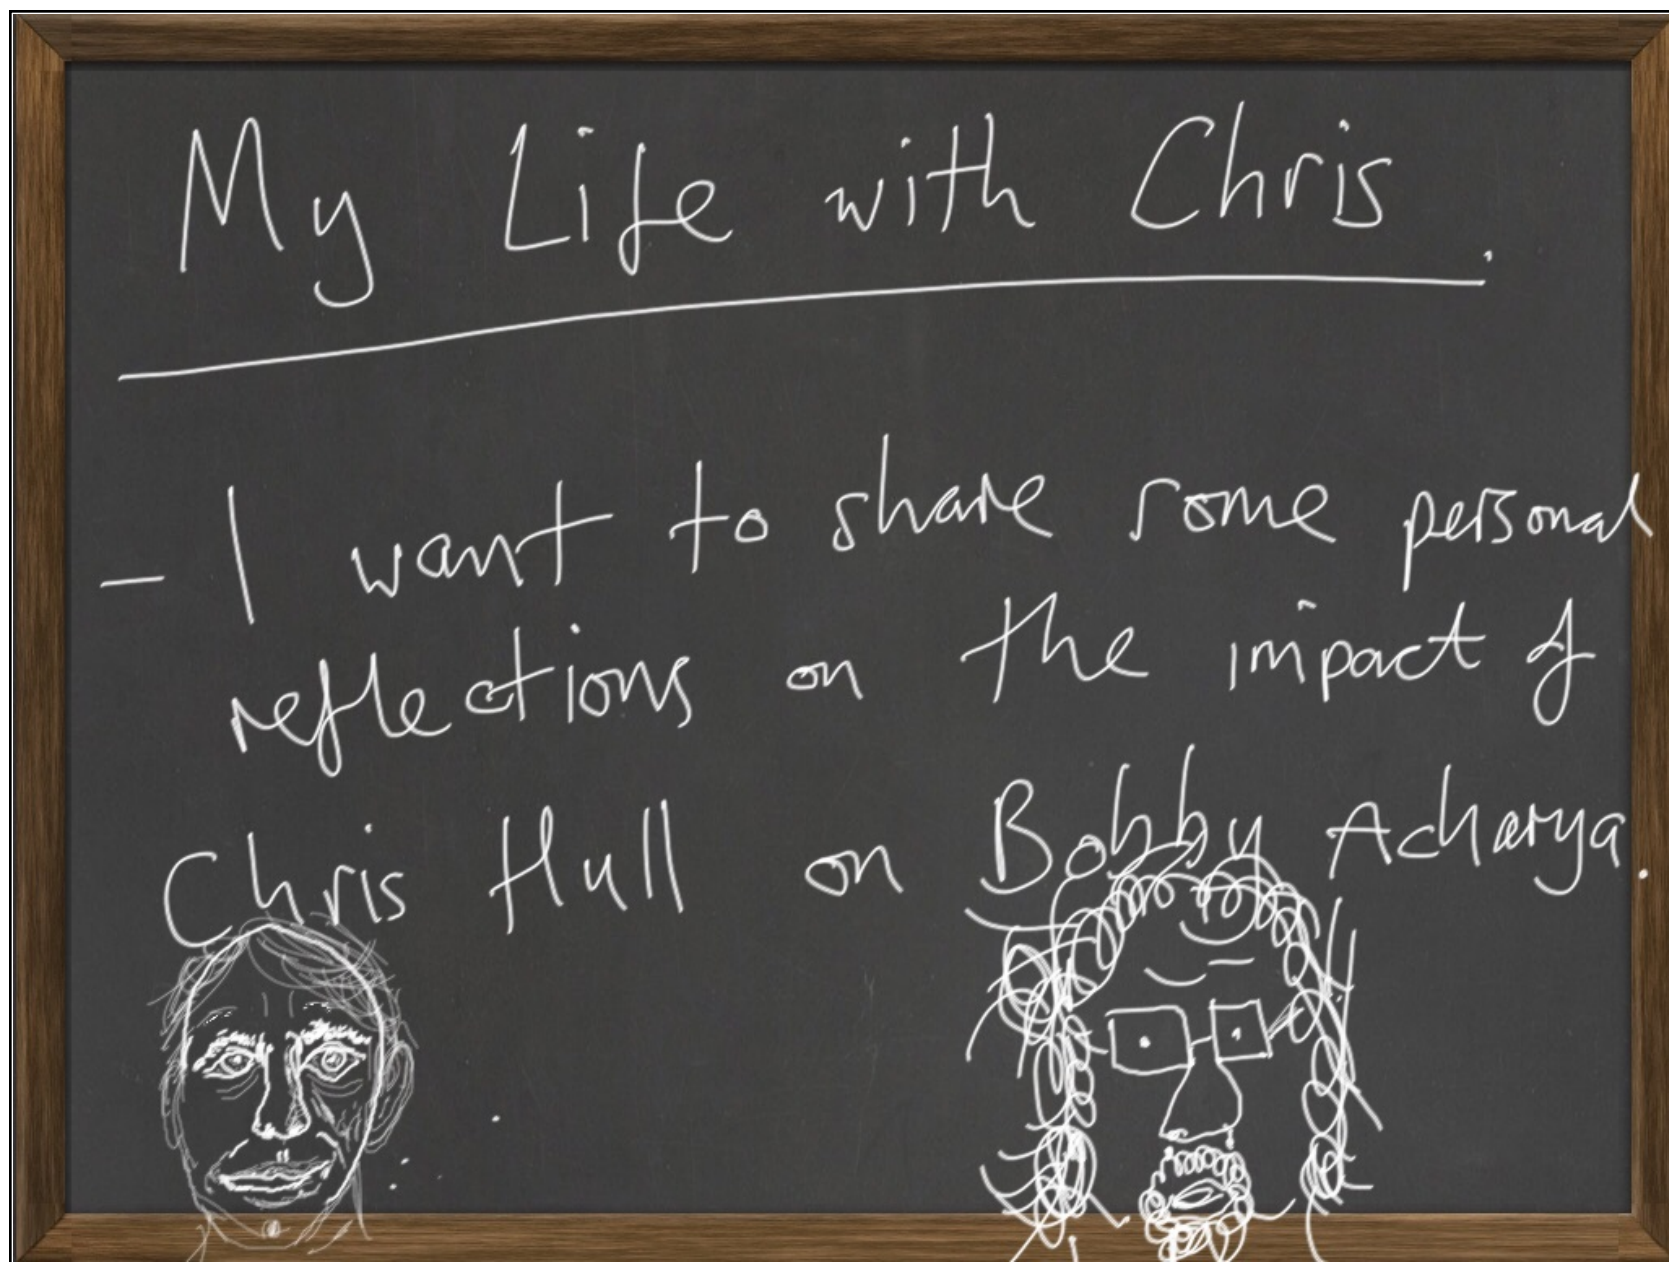 My Life with Chris.
- I want to share some personal
reflections on the impact of
Chris Hull on Bobby Acharya.